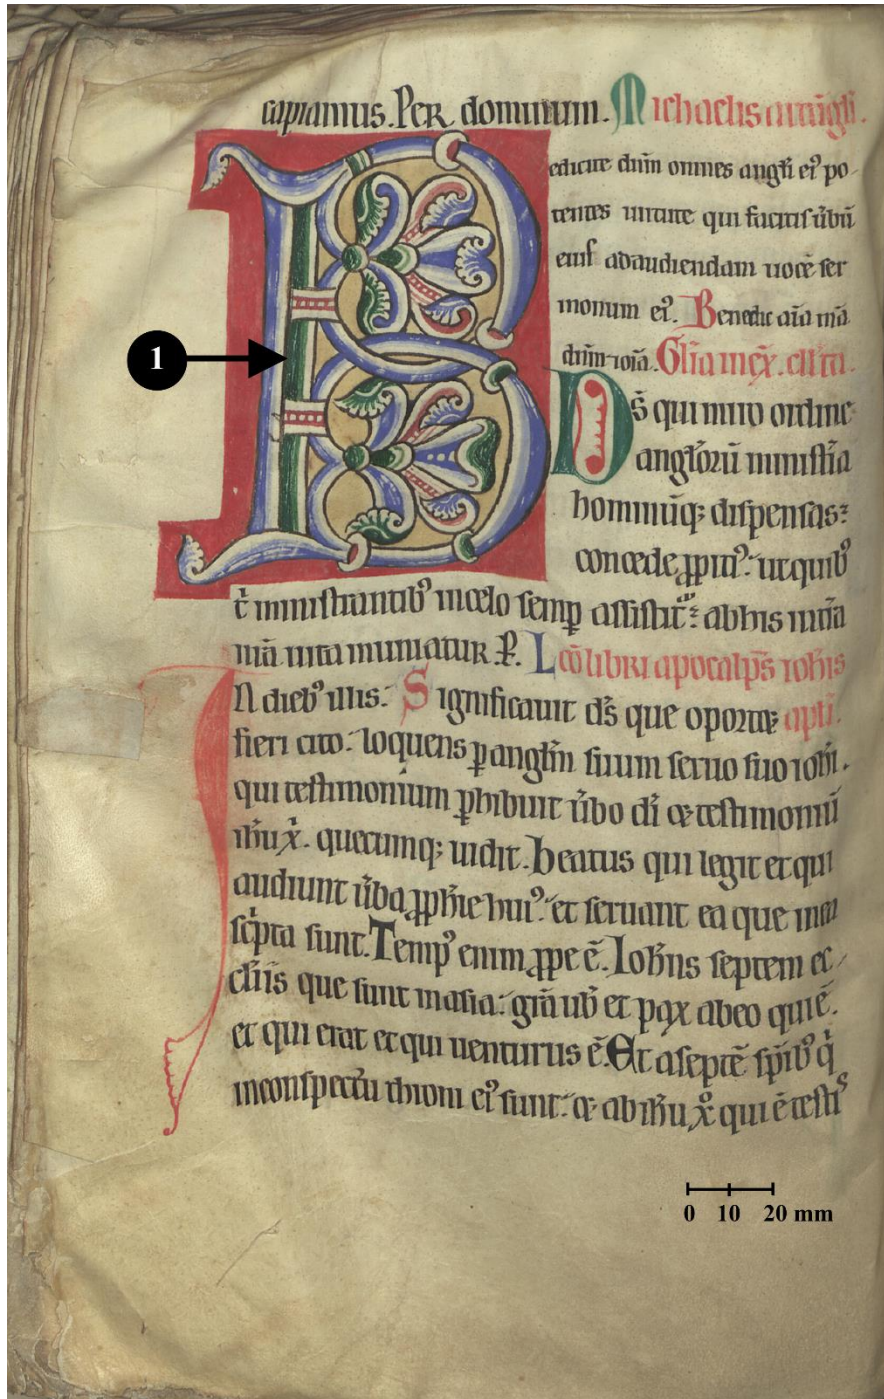 capiamus. Per dominum. Michaelis arcāgłi.
Benedicite dn̄m omnes angłi eiꝰ po
tentes uirtute qui facitis ūbū
eius adaudiendam uocē ser
monum eiꝰ. Benedic aīa mā
dn̄m. Glīa in ex̄.
Ds̄ qui miro ordine
angłorū ministīa
hominūq; dispensas:
concede ꝓpitiꝰ. ut quibꝰ
t̄ ministrantibꝰ in celo semꝑ assistit̃: ab his in tīa
nīa uita muniatur P̄. Lc̄o libri apocalip̄s ioħis
In diebꝰ illis. Significauit ds̄ que oportet apłi.
fieri cito. loquens ꝑ angłm suum seruo suo ioħi.
qui testimonium ꝑhibuit ūbo dī et testimoniū
iħu xͥ. quecumq; uidit. Beatus qui legit et qui
audiunt ūba ꝓph̄ie huiꝰ. et seruant ea que in ea
scͥpta sunt. Tempꝰ enim ꝓpe ē. Ioħns septem ec
clīis que sunt in asia. grā uob̄ et pax ab eo qui ē.
et qui erat et qui uenturus ē. Et a septē sp̄ibꝰ qͥ
in conspectu throni eiꝰ sunt. et ab iħu xͦ qui ē testis
1
0 10 20 mm